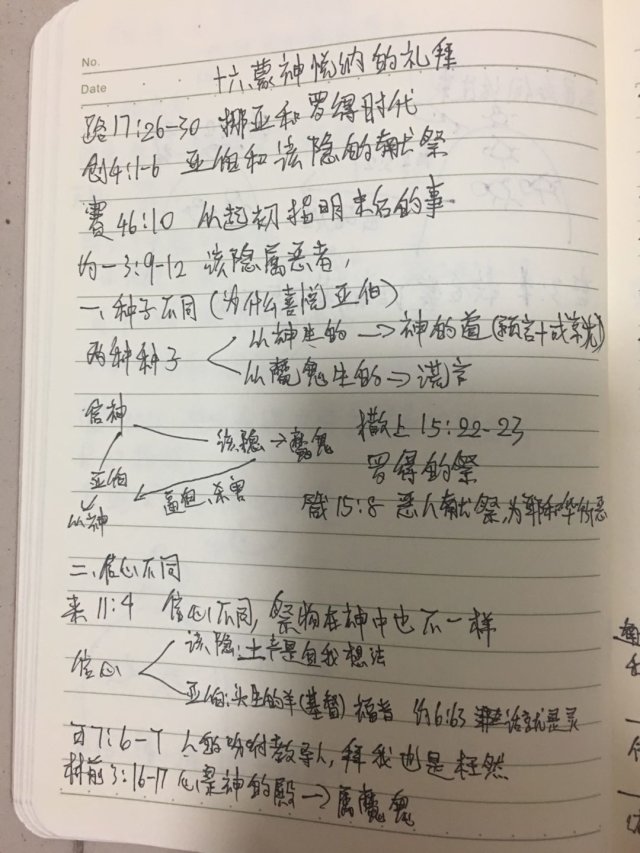 No.
十六、蒙神悦纳的礼拜
Date
路17:26-30 挪亚和罗得时代
创4:1-6 亚伯和该隐的献祭
赛46:10 从起初指明末后的事
约一3:9-12 该隐属恶者,
一、种子不同(为什么喜悦亚伯)
两种种子
从神生的→神的道(预言+成就)
从魔鬼生的→谎言
信神
该隐→魔鬼
撒上15:22-23
亚伯
逼迫、杀害
罗得的祭
从神
箴15:8 恶人献祭,为耶和华所恶
二、信心不同
来11:4 信心不同,祭物在神中也不一样
信心
该隐:土产是自我想法
亚伯:头生的羊(基督) 福音 约6:63 话就是灵
7:6-7 人的吩咐教导人,拜我也是枉然
林前3:16-17 心是神的殿→属魔鬼